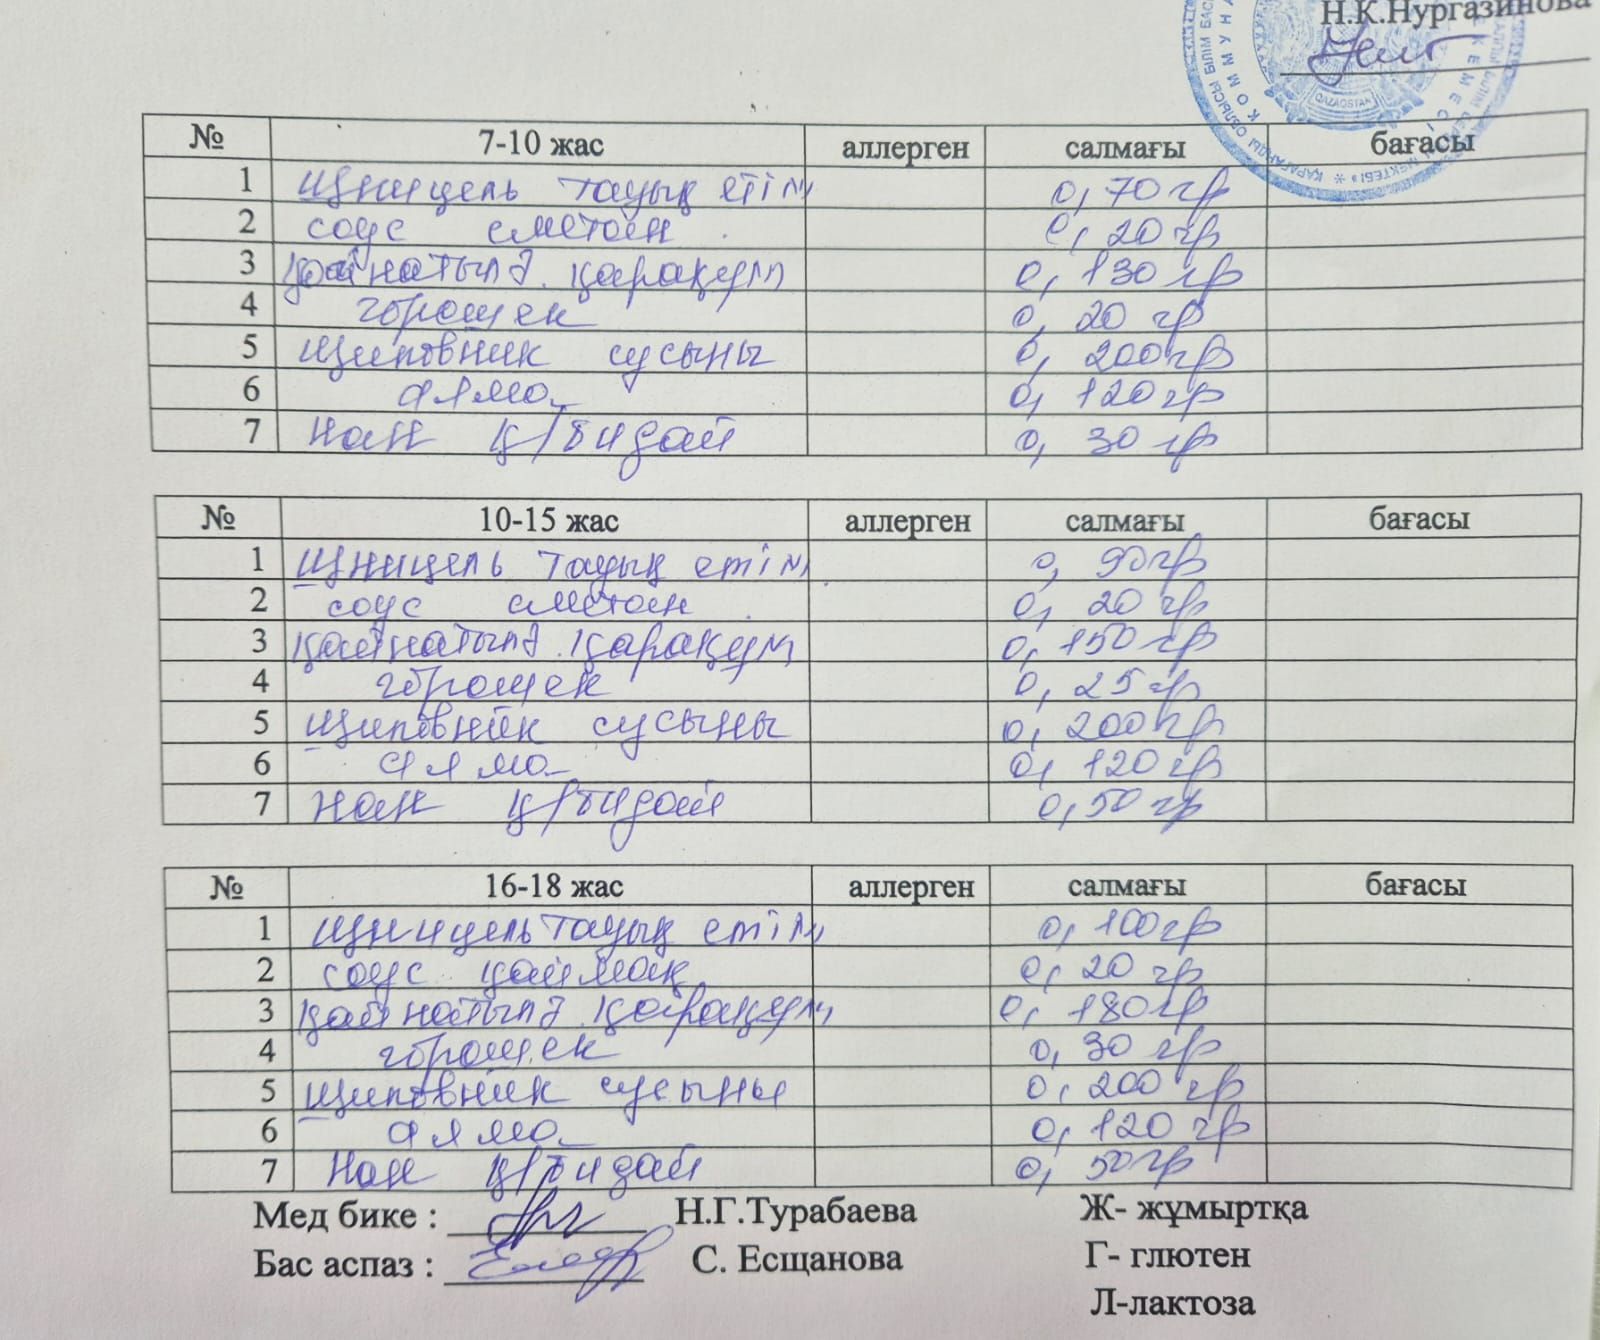 Н.К.Нургазинова
QAZAQSTAN
№ 7-10 жас аллерген салмағы бағасы
1 Шницель тауық етін 0,70 гр
2 соус сметан 0,20 гр
3 қайнатылғ. қарақұм 0,130 гр
4 горошек 0,20 гр
5 Шиповник сусыны 0,200 гр
6 алма 0,120 гр
7 Нан қ/бидай 0,30 гр
№ 10-15 жас аллерген салмағы бағасы
1 Шницель тауық етін 0,90 гр
2 соус сметан 0,20 гр
3 қайнатылғ. қарақұм 0,150 гр
4 горошек 0,25 гр
5 Шиповник сусыны 0,200 гр
6 алма 0,120 гр
7 Нан қ/бидай 0,50 гр
№ 16-18 жас аллерген салмағы бағасы
1 Шницель тауық етін 0,100 гр
2 соус қаймақ 0,20 гр
3 қайнатылғ. қарақұм 0,180 гр
4 горошек 0,30 гр
5 Шиповник сусыны 0,200 гр
6 алма 0,120 гр
7 Нан қ/бидай 0,50 гр
Мед бике : Н.Г.Турабаева Ж- жұмыртқа
Бас аспаз : С. Есщанова Г- глютен
Л-лактоза